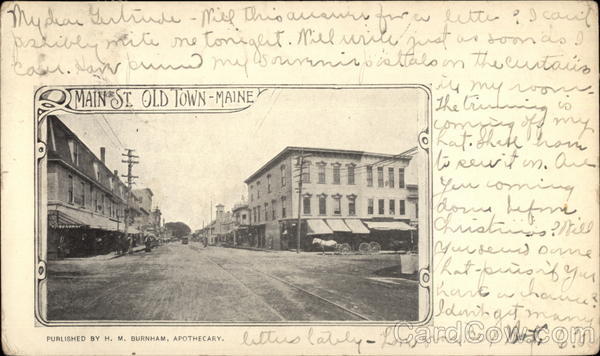 My dear Gertrude - Will this answer for a letter? I can't
possibly write one tonight. Will write just as soon as I
can. Have pinned my souvenir postals on the curtains
in my room.
the trimming is
coming off my
hat. Shall have
to sew it on. Are
you coming
down before
Christmas? Will
you send some
hat-pins if you
have a chance?
I don't get many
letters lately -
MAIN ST. OLD TOWN - MAINE
PUBLISHED BY H. M. BURNHAM, APOTHECARY.
CardCow.com